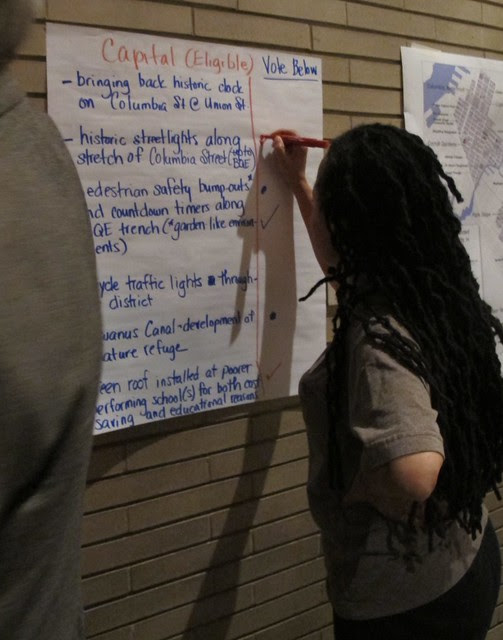 Capital (Eligible)
Vote Below
- bringing back historic clock
on Columbia St @ Union St
- historic streetlights along
stretch of Columbia Street (up to
BQE)
edestrian safety bump-outs
nd countdown timers along
QE trench (*garden like
ents)
ycle traffic lights through-
district
wanus Canal-development of
ature refuge
een roof installed at poorer
erforming school(s) for both cost
saving and educational reasons